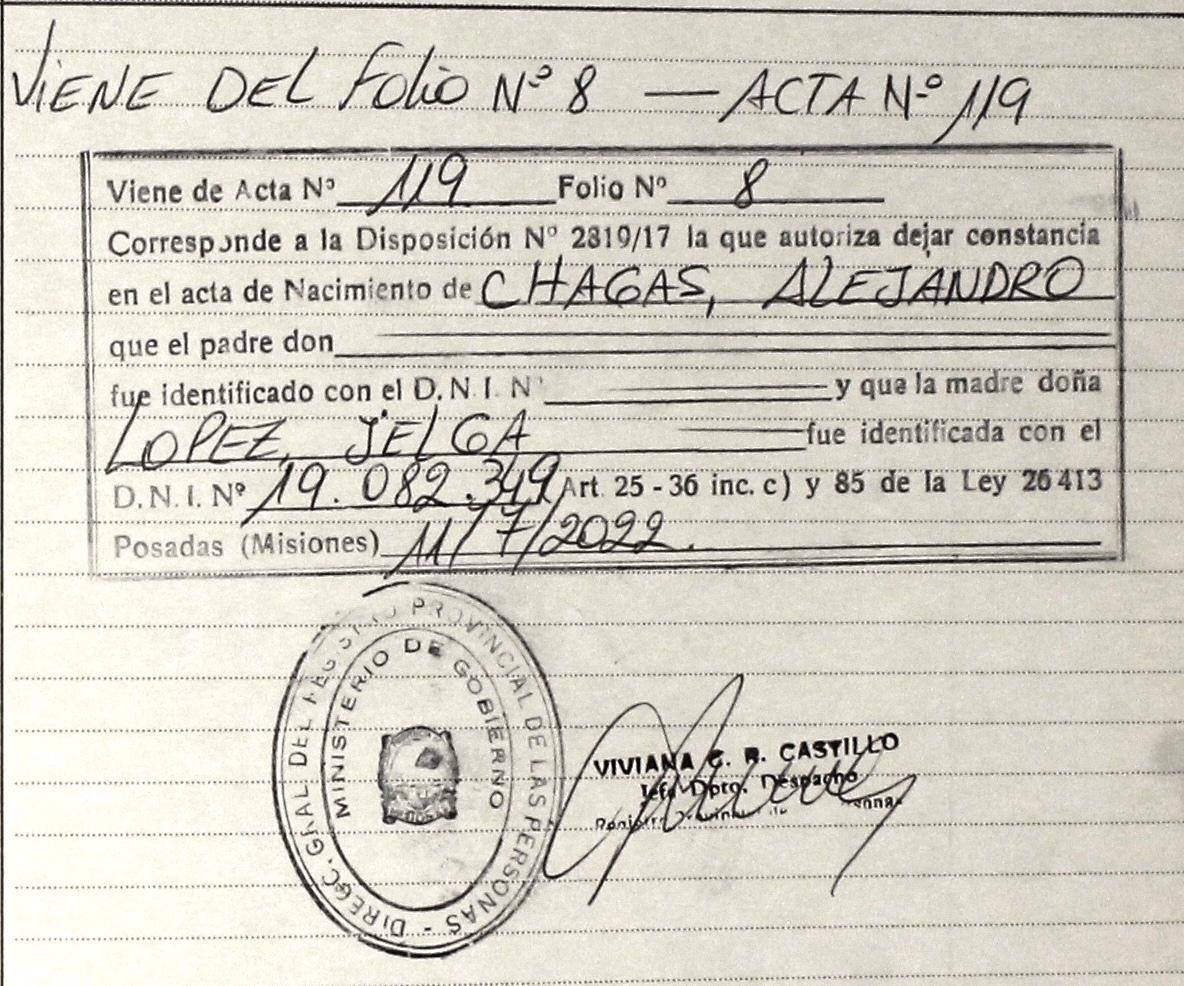 VIENE DEL FOLIO Nº 8 — ACTA Nº 119
Viene de Acta Nº 119 Folio Nº 8
Corresponde a la Disposición Nº 2819/17 la que autoriza dejar constancia
en el acta de Nacimiento de CHAGAS, ALEJANDRO
que el padre don
fue identificado con el D.N.I. Nº y que la madre doña
LOPEZ, JELGA fue identificada con el
D.N.I. Nº 19.082.349 Art. 25 - 36 inc. c) y 85 de la Ley 26413
Posadas (Misiones) 11/7/2022.
DIRECC. GRAL. DEL REGISTRO PROVINCIAL DE LAS PERSONAS -
MINISTERIO DE GOBIERNO
VIVIANA C. R. CASTILLO
Jefa Dpto. Despacho